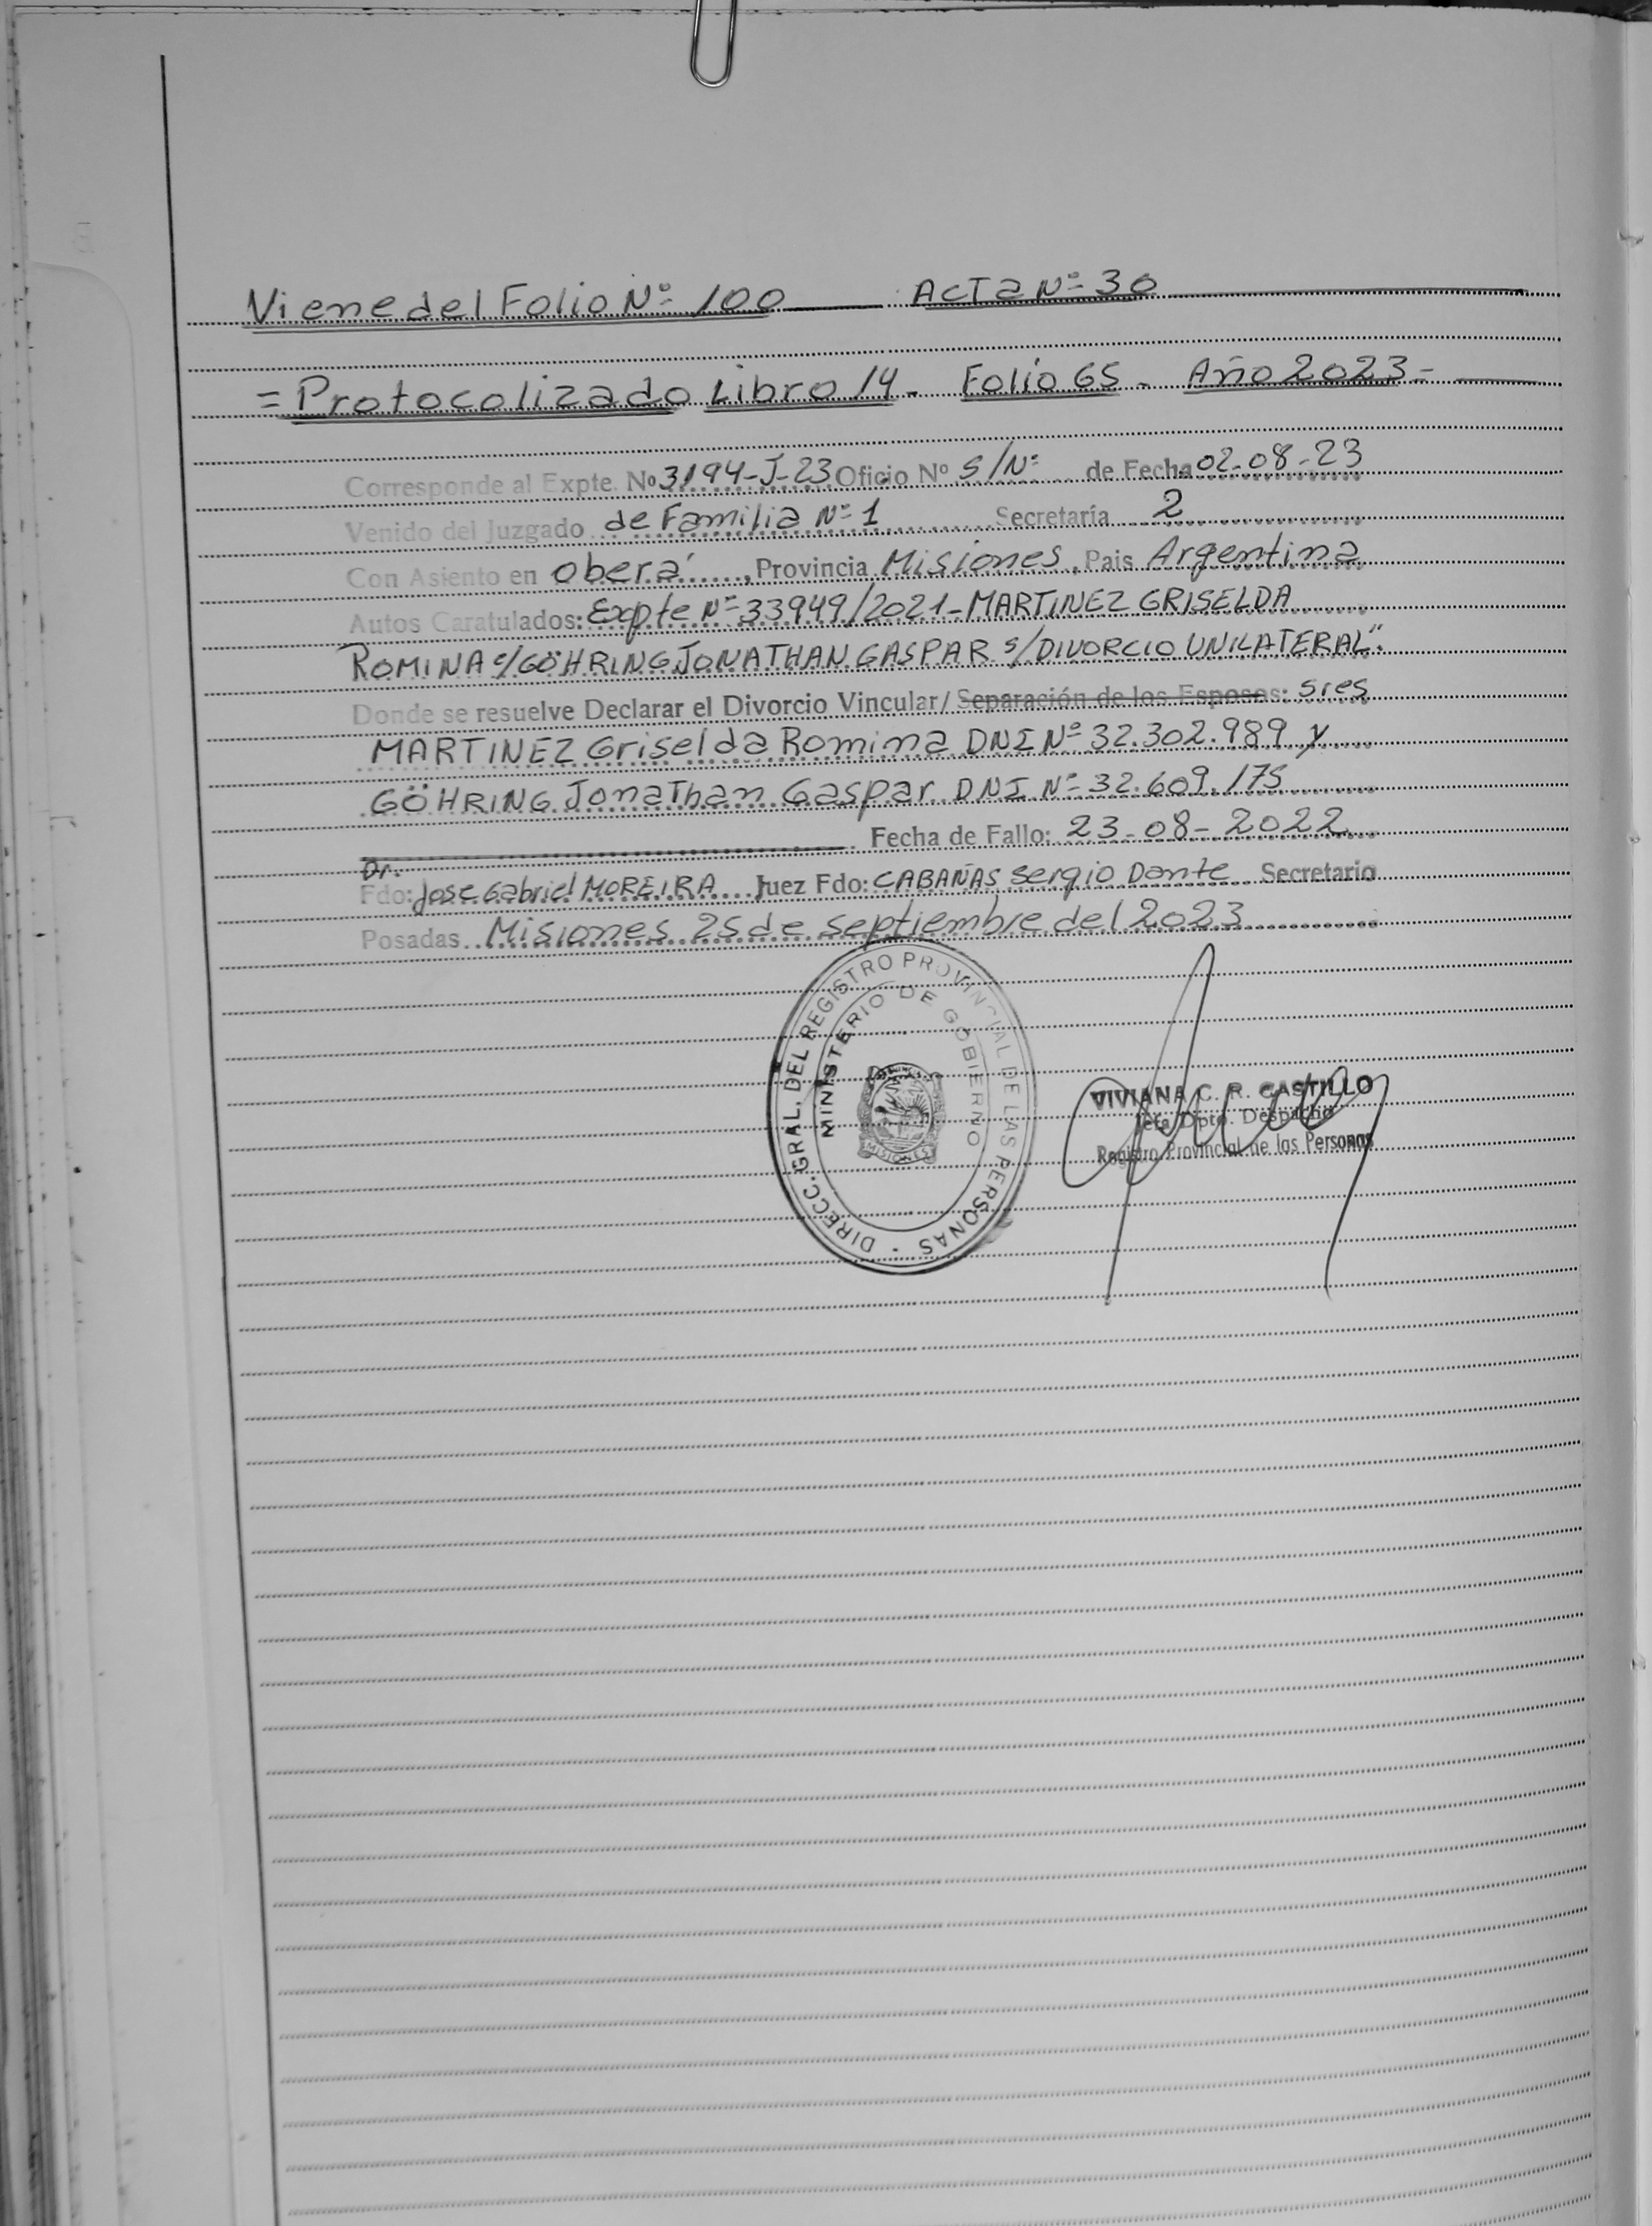 Viene del Folio Nº 100 —— Acta Nº 30
= Protocolizado Libro 14 - Folio 65 - Año 2023 -
Corresponde al Expte. Nº 3194-J-23 Oficio Nº S/Nº de Fecha 02-08-23
Venido del Juzgado de Familia Nº 1 Secretaría 2
Con Asiento en Oberá, Provincia Misiones, Pais Argentina
Autos Caratulados: Expte Nº 33949/2021 - MARTINEZ GRISELDA
ROMINA c/ GÖHRING JONATHAN GASPAR s/ DIVORCIO UNILATERAL".
Donde se resuelve Declarar el Divorcio Vincular/ Separación de los Esposos: sres
MARTINEZ Griselda Romina DNI Nº 32.302.989 y
GÖHRING Jonathan Gaspar DNI Nº 32.609.175
Fecha de Fallo: 23-08-2022
Dr.
Fdo: Jose Gabriel MOREIRA Juez Fdo: CABAÑAS Sergio Dante Secretario
Posadas Misiones 25 de septiembre del 2023
DIRECC. GRAL. DEL REGISTRO PROVINCIAL DE LAS PERSONAS
MINISTERIO DE GOBIERNO
MISIONES
VIVIANA C. R. CASTILLO
Jefa Dpto. Despacho
Registro Provincial de las Personas